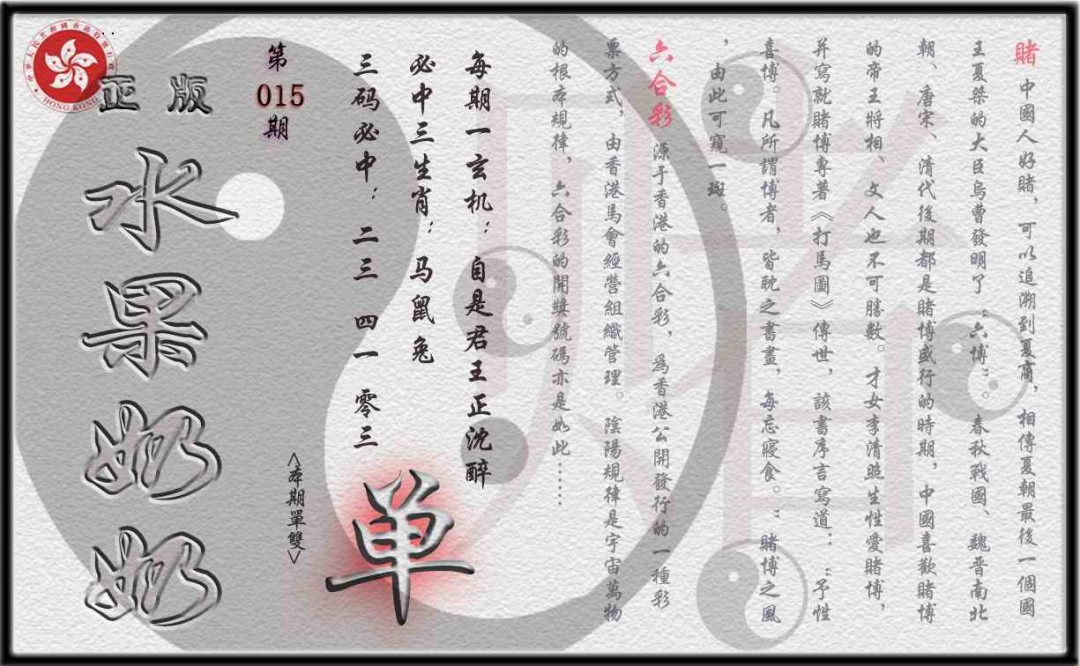 賭 中國人好賭，可以追溯到夏商，相傳夏朝最後一個國
王夏桀的大臣烏曹發明了“六博”。春秋戰國、魏晉南北
朝、唐宋、清代後期都是賭博盛行的時期，中國喜歡賭博
的帝王將相、文人也不可勝數。才女李清照生性愛賭博，
并寫就賭博專著《打馬圖》傳世，該書序言寫道：“予性
喜博。凡所謂博者，皆耽之書畫，每忘寢食。”賭博之風
，由此可窺一斑。
六合彩 源于香港的六合彩，為香港公開發行的一種彩
票方式，由香港馬會經營組織管理。陰陽規律是宇宙萬物
的根本規律，六合彩的開獎號碼亦是如此……
每期一玄机：自是君王正沈醉
必中三生肖：马鼠兔
三码必中：二三 四一 零三
单
<本期單雙>
第
015
期
正版
水果奶奶
HONG KONG